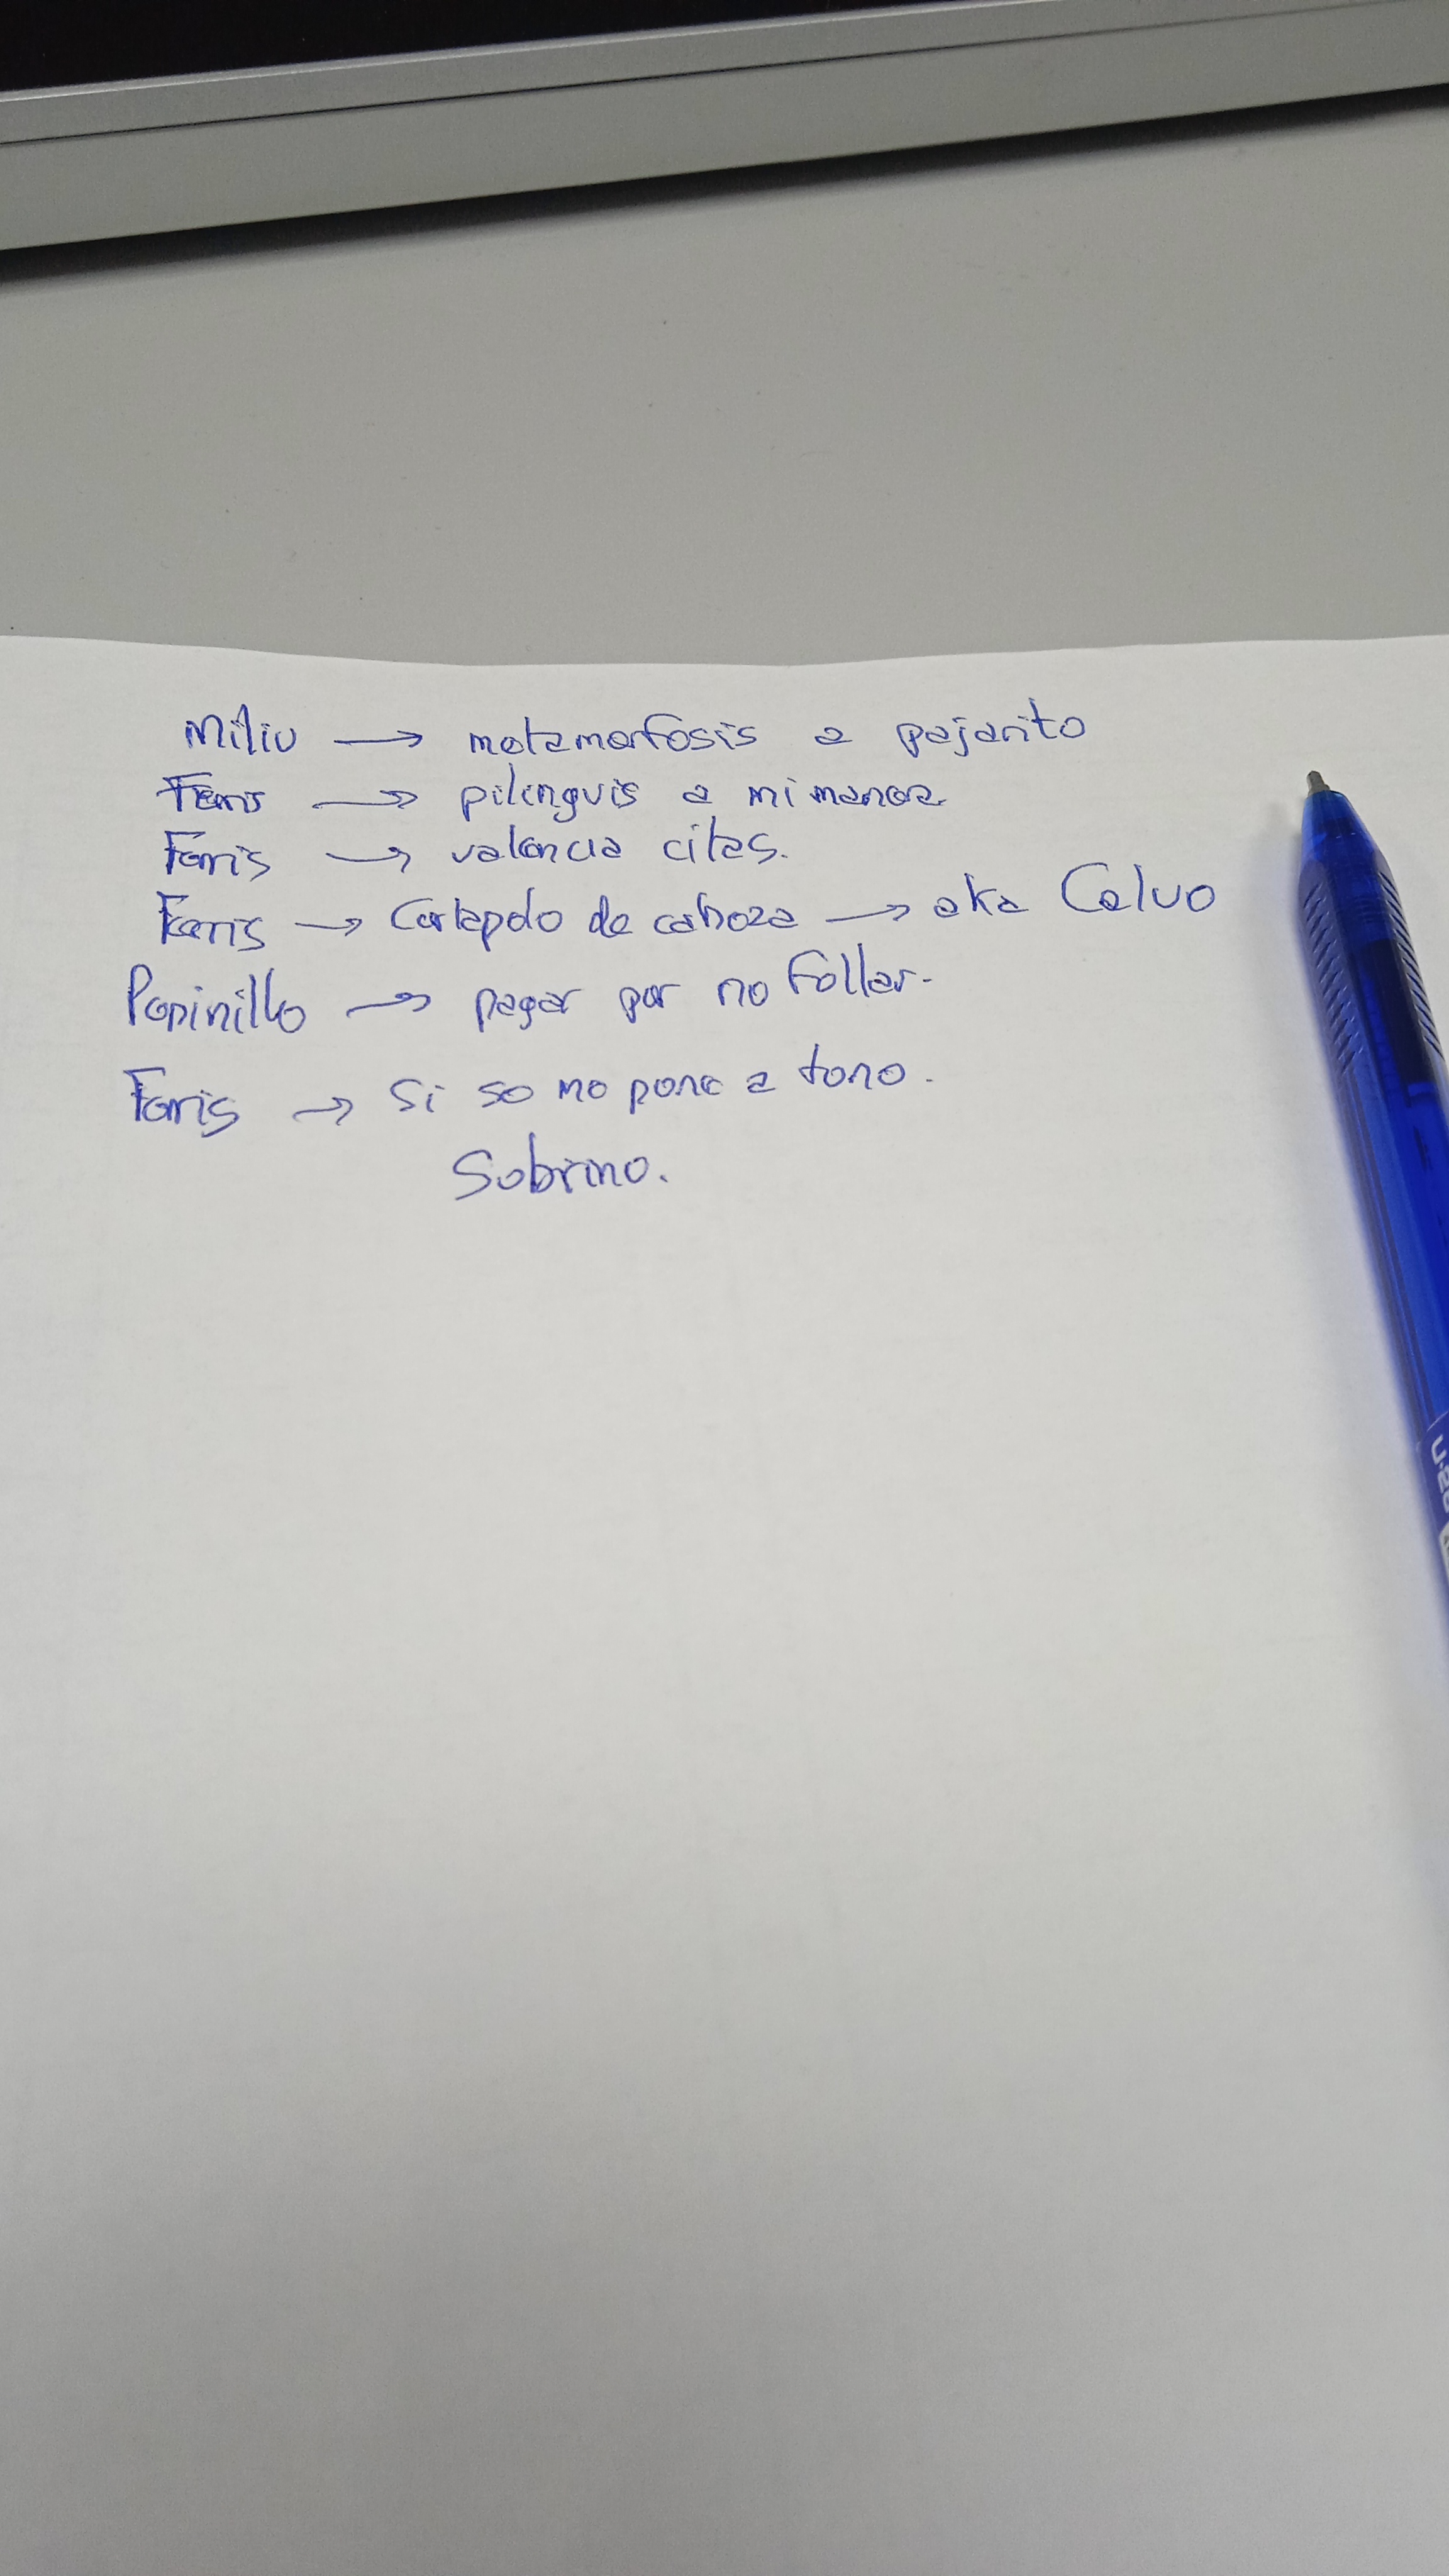 Miliu → metamorfosis a pajarito
Ferris → pilinguis a mi manera
Ferris → valencia citas.
Ferris → Cortapelo de cabeza → aka Calvo
Pepinillo → pagar por no follar.
Ferris → Si se me pone a tono.
Sobrino.